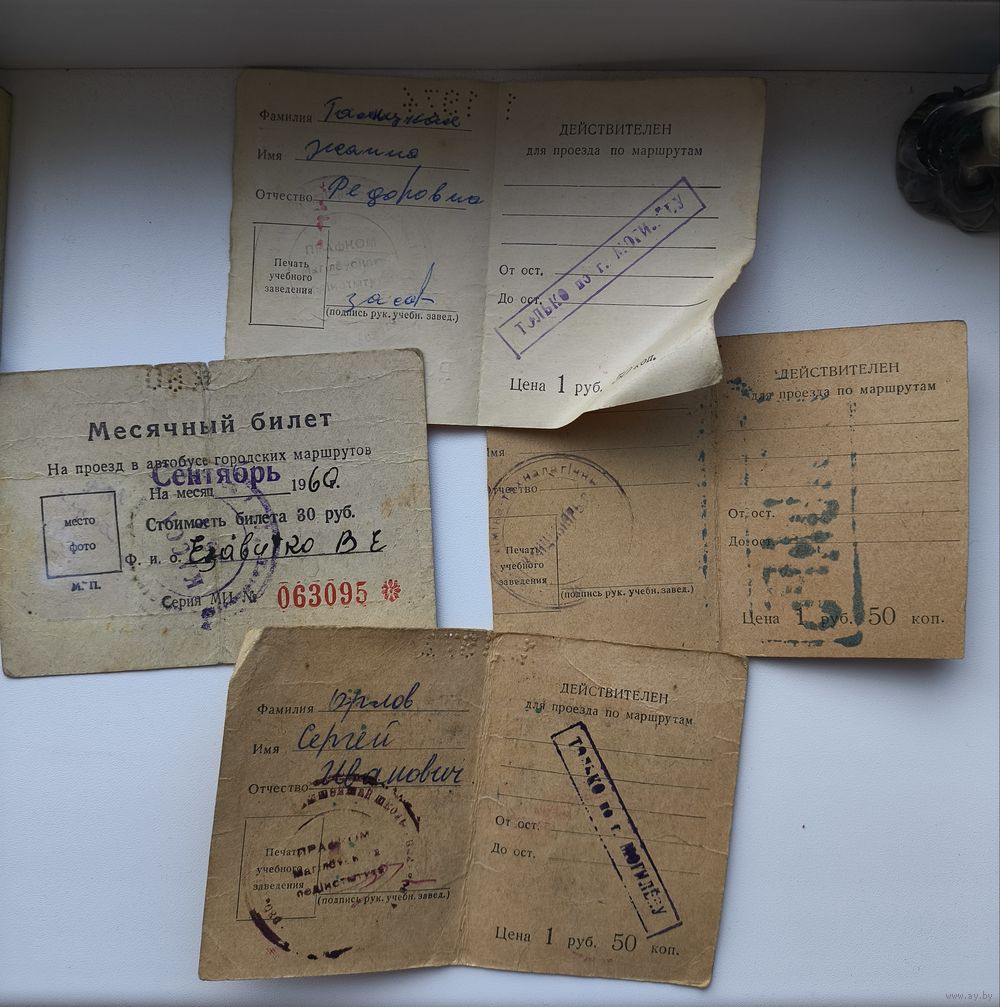 Фамилия
Имя Жанна
Отчество Федоровна
Печать
учебного
заведения
(подпись рук. учебн. завед.)
ПРАФКОМ
ДЕЙСТВИТЕЛЕН
для проезда по маршрутам
От ост.
До ост.
ТОЛЬКО по г.
Цена 1 руб.
Месячный билет
На проезд в автобусе городских маршрутов
Сентябрь
На месяц 1960.
Стоимость билета 30 руб.
место
фото
М. П.
Ф. и. о. В Е
Серия МЦ № 063095
ДЕЙСТВИТЕЛЕН
для проезда по маршрутам
От ост.
До ост.
Цена 1 руб. 50 коп.
Имя
Отчество
Печать
учебного
заведения
(подпись рук. учебн. завед.)
Фамилия Орлов
Имя Сергей
Отчество Иванович
Печать
учебного
заведения
(подпись рук. учебн. завед.)
ПРАФКОМ
ДЕЙСТВИТЕЛЕН
для проезда по маршрутам
От ост.
До ост.
ТОЛЬКО по г. МОГИЛЕВУ
Цена 1 руб. 50 коп.
www.ay.by